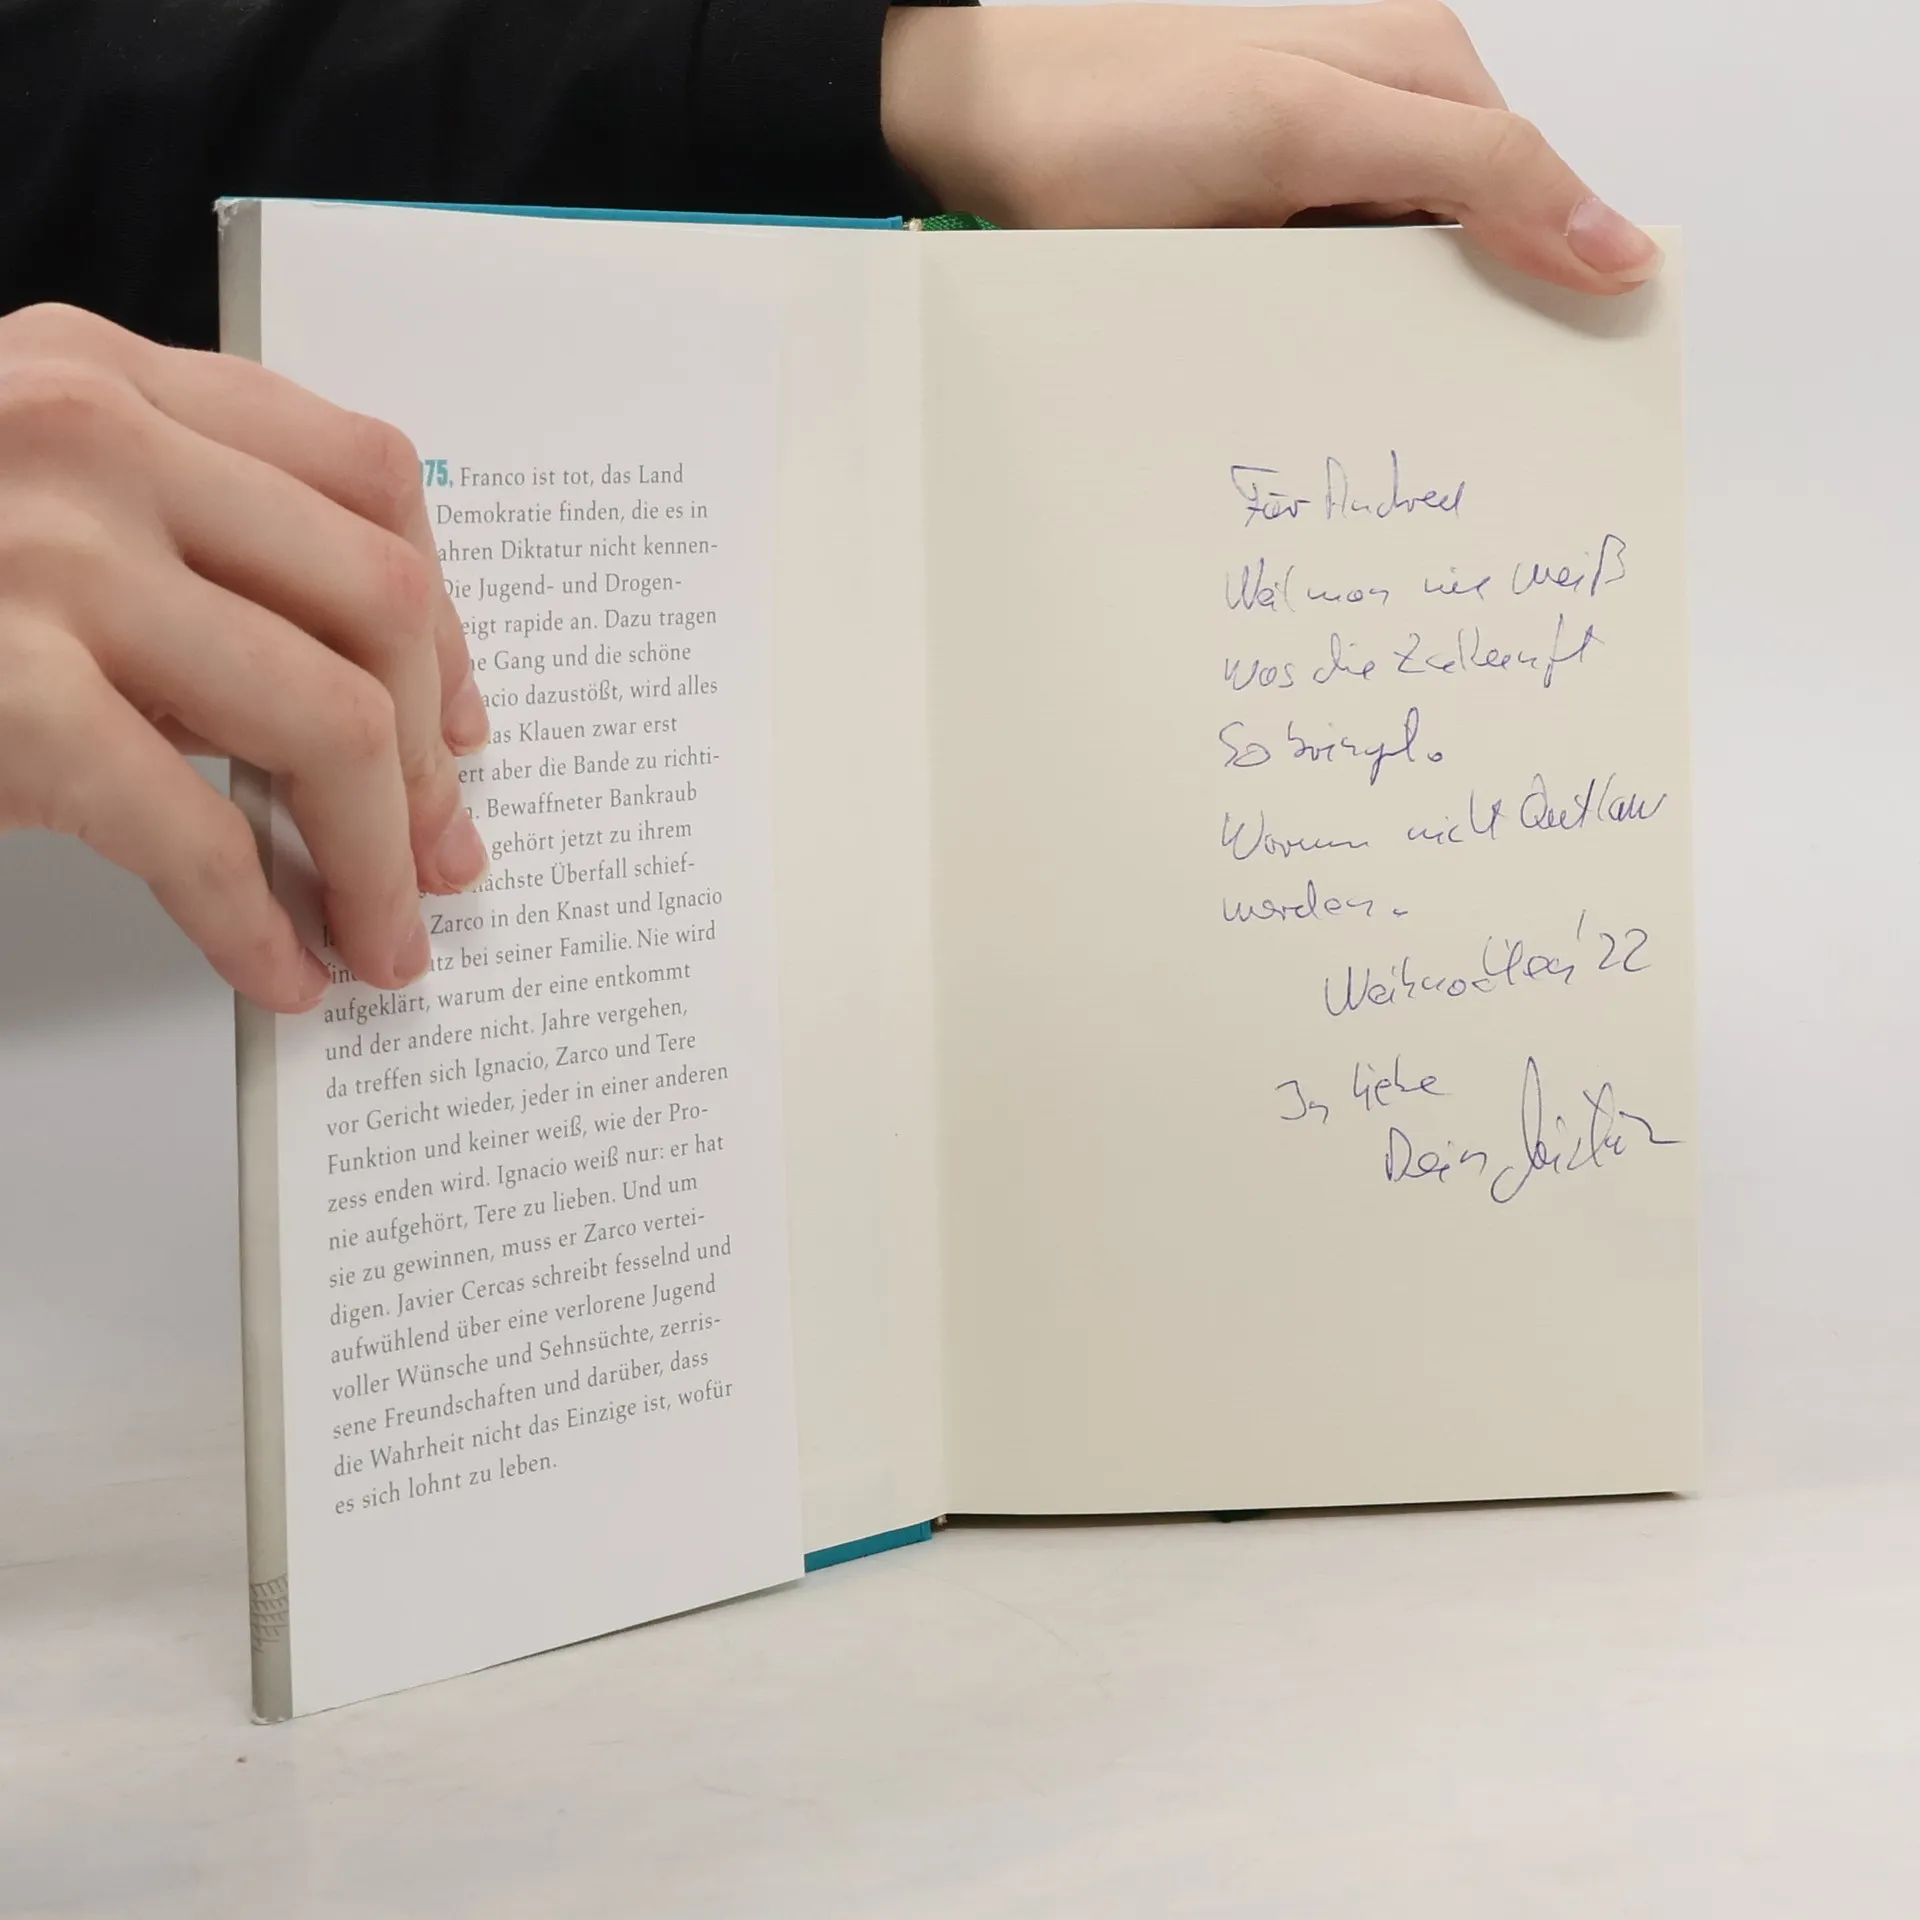 75, Franco ist tot, das Land
Demokratie finden, die es in
ahren Diktatur nicht kennen-
Die Jugend- und Drogen-
eigt rapide an. Dazu tragen
ne Gang und die schöne
acio dazustößt, wird alles
das Klauen zwar erst
ert aber die Bande zu richti-
n. Bewaffneter Bankraub
gehört jetzt zu ihrem
nächste Überfall schief-
Zarco in den Knast und Ignacio
tz bei seiner Familie. Nie wird
aufgeklärt, warum der eine entkommt
und der andere nicht. Jahre vergehen,
da treffen sich Ignacio, Zarco und Tere
vor Gericht wieder, jeder in einer anderen
Funktion und keiner weiß, wie der Pro-
zess enden wird. Ignacio weiß nur: er hat
nie aufgehört, Tere zu lieben. Und um
sie zu gewinnen, muss er Zarco vertei-
digen. Javier Cercas schreibt fesselnd und
aufwühlend über eine verlorene Jugend
voller Wünsche und Sehnsüchte, zerris-
sene Freundschaften und darüber, dass
die Wahrheit nicht das Einzige ist, wofür
es sich lohnt zu leben.
Für
Weil man nie weiß
was die Zukunft
so bringt.
Warum nicht Outlaw
werden.
Weihnachten '22
In Liebe
Dein